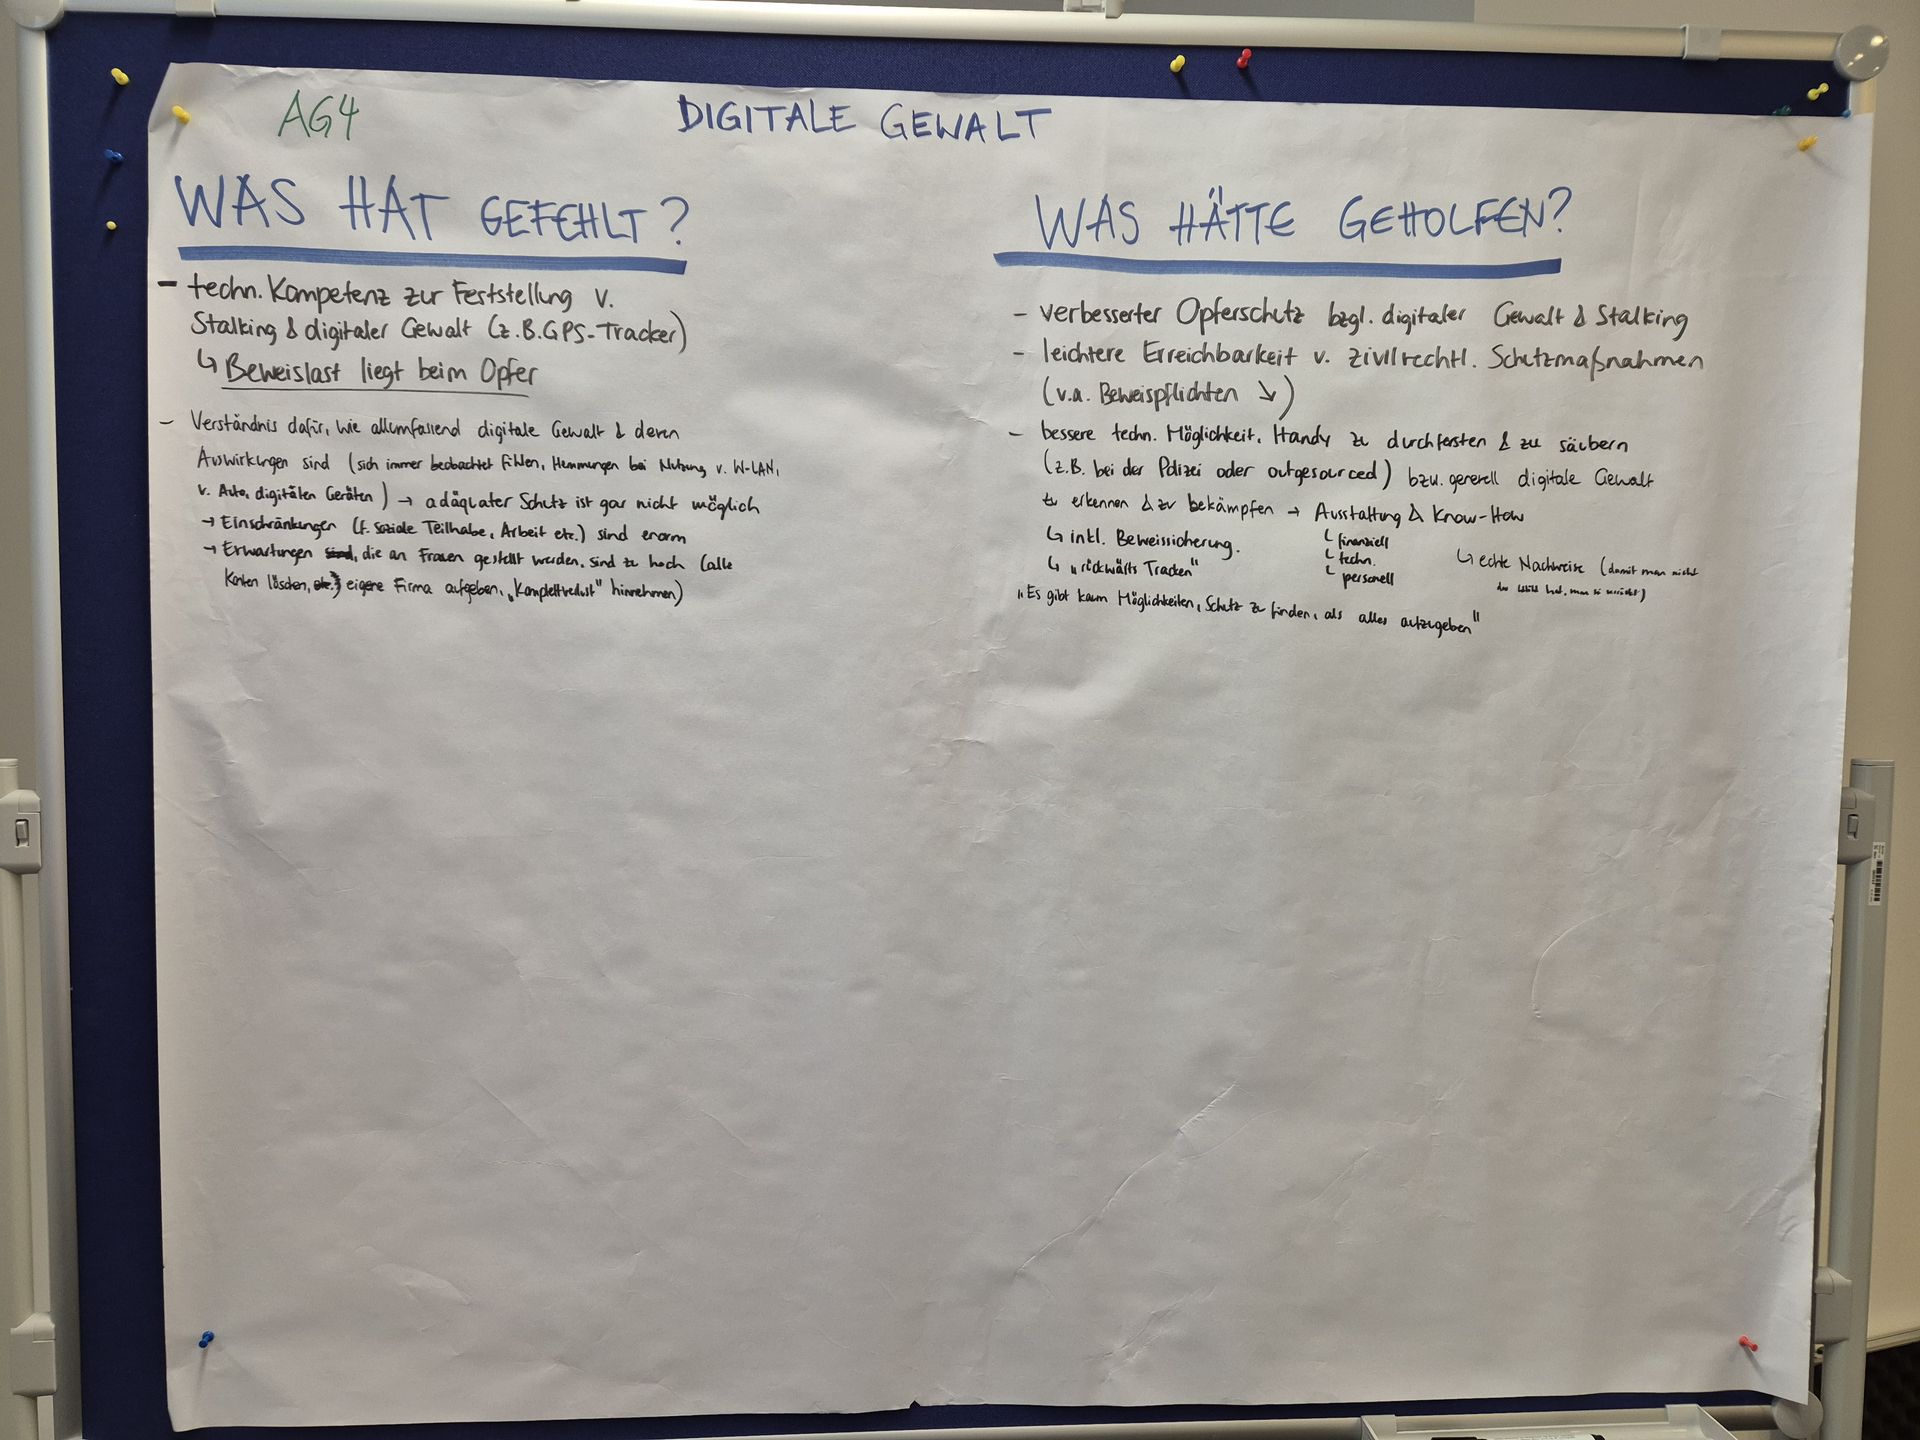 AG4
DIGITALE GEWALT
WAS HAT GEFEHLT?
- techn. Kompetenz zur Feststellung v.
Stalking & digitaler Gewalt (z.B. GPS-Tracker)
↳ Beweislast liegt beim Opfer
- Verständnis dafür, wie allumfassend digitale Gewalt & deren
Auswirkungen sind (sich immer beobachtet fühlen, Hemmungen bei Nutzung v. W-LAN,
v. Auto, digitalen Geräten) → adäquater Schutz ist gar nicht möglich
→ Einschränkungen (f. soziale Teilhabe, Arbeit etc.) sind enorm
→ Erwartungen sind, die an Frauen gestellt werden, sind zu hoch (alle
Konten löschen, etc.) eigene Firma aufgeben, „Komplettverlust" hinnehmen)
WAS HÄTTE GEHOLFEN?
- verbesserter Opferschutz bzgl. digitaler Gewalt & Stalking
- leichtere Erreichbarkeit v. zivilrechtl. Schutzmaßnahmen
(v.a. Beweispflichten ↘)
- bessere techn. Möglichkeit, Handy zu durchforsten & zu säubern
(z.B. bei der Polizei oder outgesourced) bzw. generell digitale Gewalt
zu erkennen & zu bekämpfen → Ausstattung & Know-How
↳ finanziell
↳ techn.
↳ personell
↳ inkl. Beweissicherung.
↳ „rückwärts Tracken"
↳ echte Nachweise (damit man nicht
das hat, man sei verrückt)
„Es gibt kaum Möglichkeiten, Schutz zu finden, als alles aufzugeben"